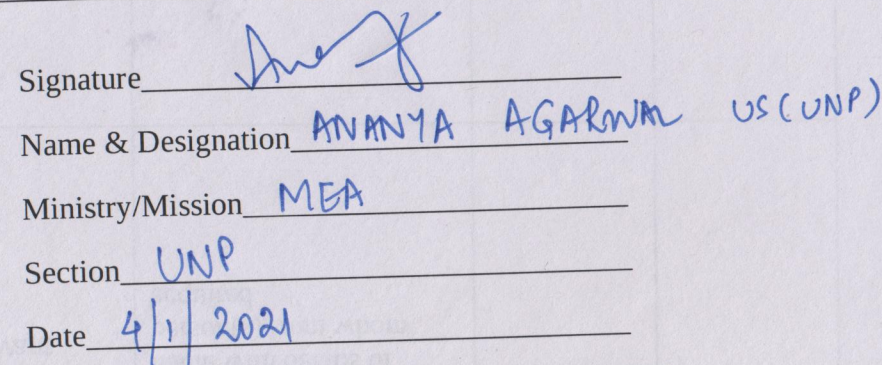 Signature
Name & Designation ANANYA AGARWAL US (UNP)
Ministry/Mission MEA
Section UNP
Date 4/1/2021